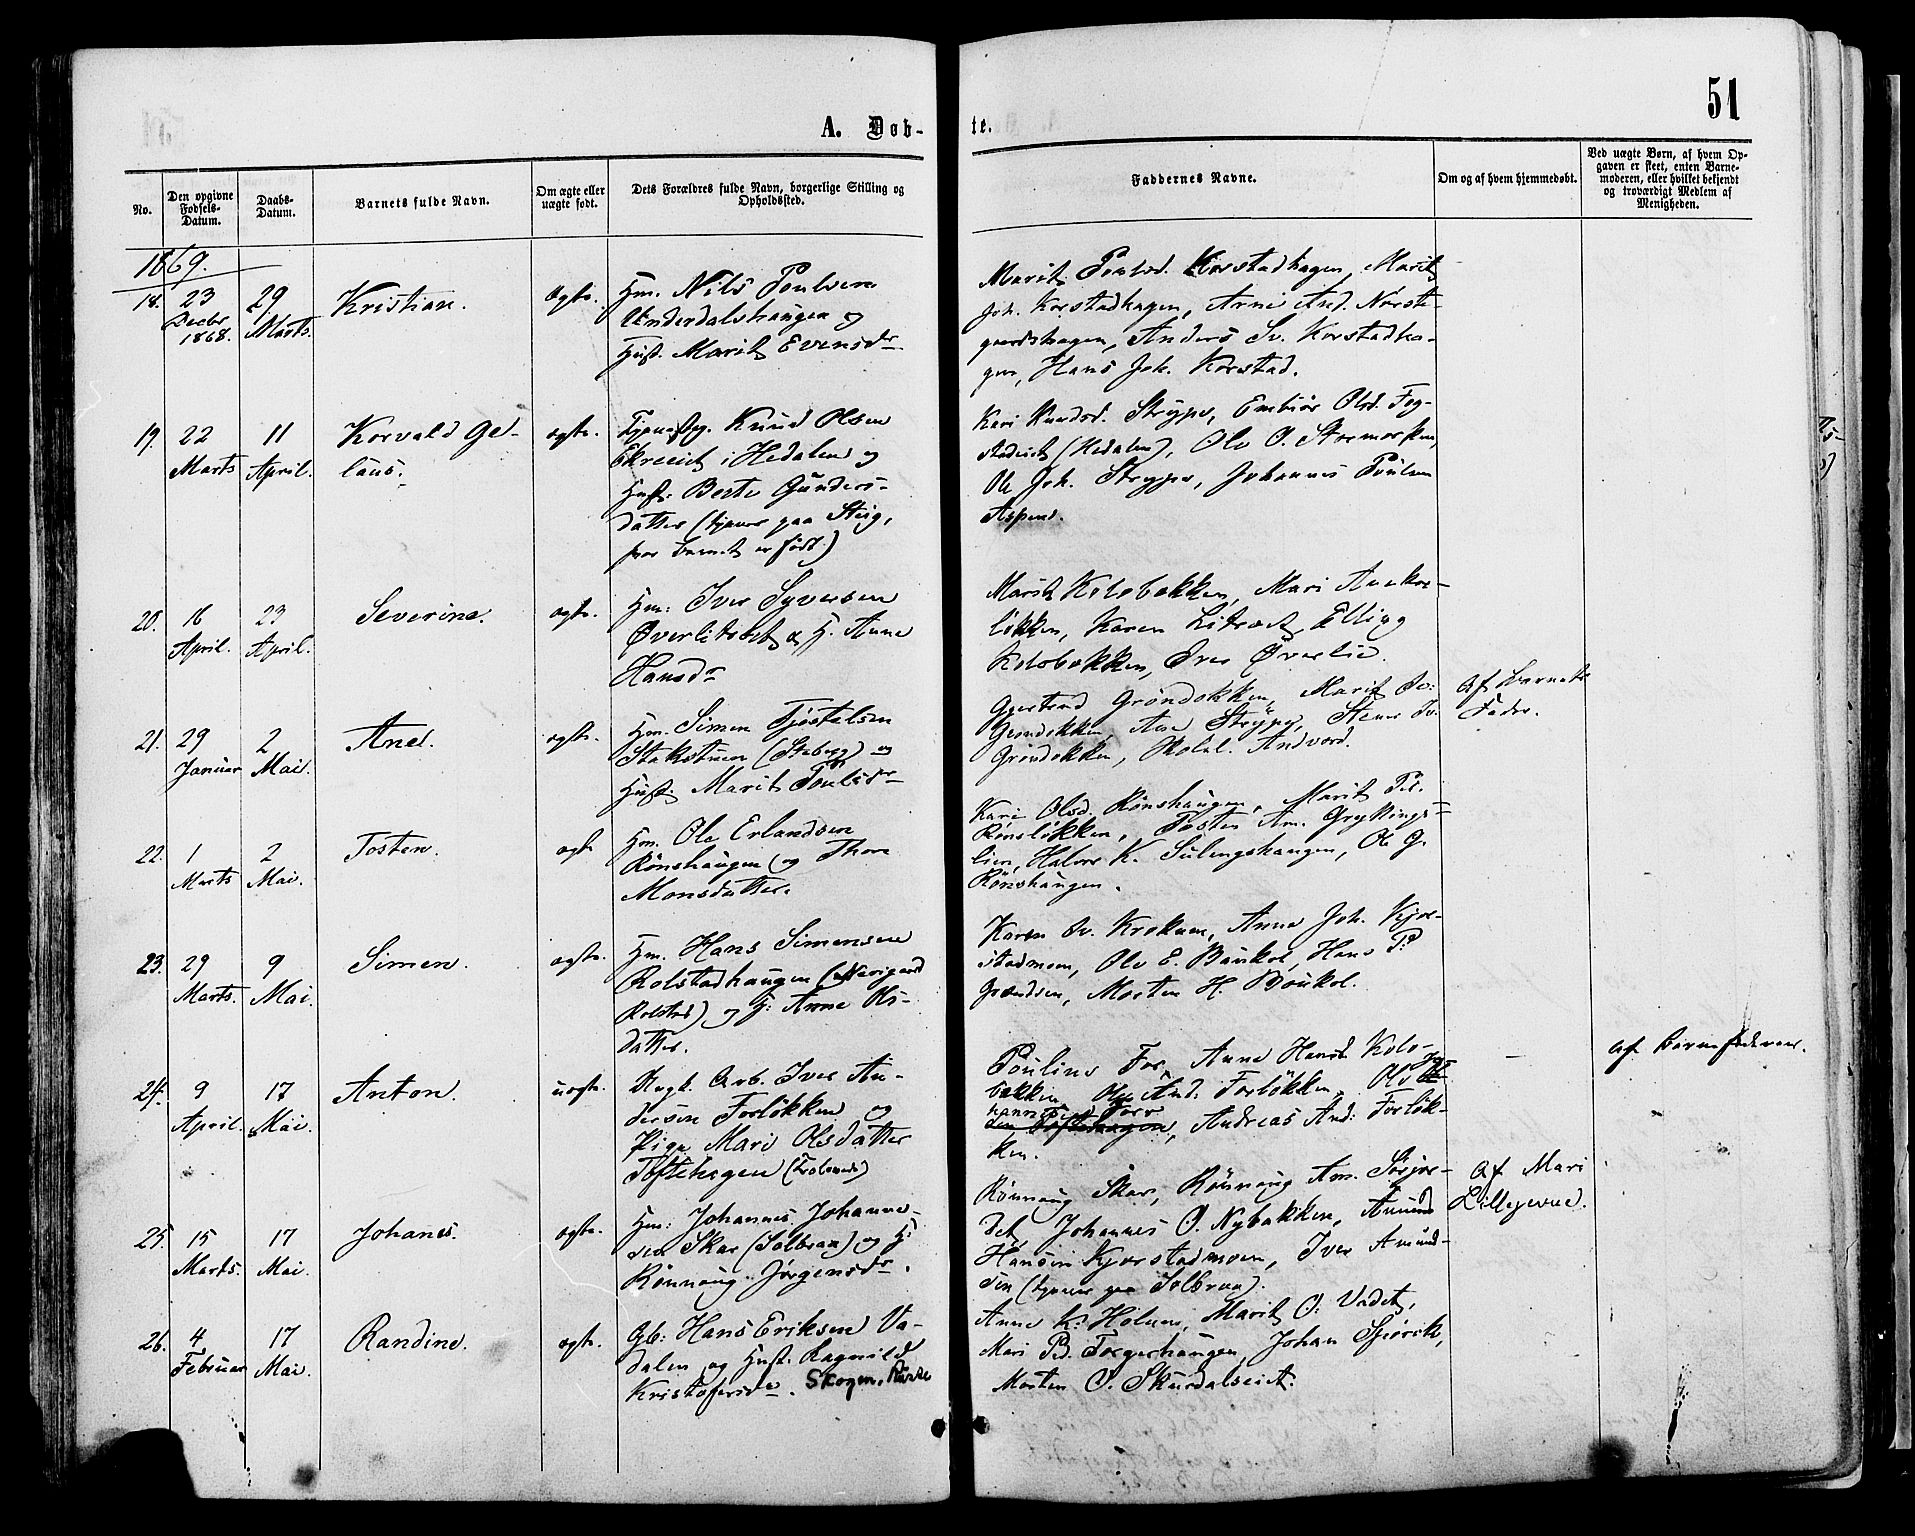 51
A. Døb-
te.
No.
Den opgivne Fødsels-Datum.
Daabs-Datum.
Barnets fulde Navn.
Om ægte eller uægte født.
Dets Forældres fulde Navn, borgerlige Stilling og Opholdssted.
Faddernes Navne.
Om og af hvem hjemmedøbt.
Ved uægte Børn, af hvem Op-
gaven er skeet, enten Barne-
moderen, eller hvilket bekjendt
og troværdigt Medlem af
Menigheden.
1869.
18. 23 Decbr 1868. 29 Marts. Kristian. ægte.
Hm. Nils Poulsen
Underdalshaugen og
Hust. Marit Evensdr
Marit Poulsd. Korstadhagen, Marit
Joh. Korstadhagen, Arne And. Nørste-
gaardshagen, Anders Sv. Korstadha-
gen, Hans Joh. Korstad.
19. 22 Marts 11 April. Korvald Ge-
laus. ægte.
Tjenestg. Knud Olsen
Ekreeiet i Hedalen og
Hust. Berte Gunders-
datter (tjener paa Steig,
hvor barnet er født)
Kari Knudsd. Strype, Embjør Olsd. Fog-
stadeiet (Hedalen), Ole O. Stormorken,
Ole Joh. Strype, Johannes Poulsen
Aspend.
20. 16 April. 23 April. Severine. ægte.
Hm: Iver Syversen
Øverlisætet & H. Anne
Hansdr
Marit Kolobakken, Mari Anekre-
løkken, Karen Litræet, Elling
Kolobakken, Iver Øverlie.
21. 29 Januar 2 Mai. Ane. ægte.
Hm. Simen Tjøstelsen
Stakstuen (Steberg) og
Hust. Marit Poulsdr
Gjertrud Grøndokken, Marit Sv:
Grøndokken, Ane Strype, Stener Sv.
Grøndokken, Skolel. Andvord.
Af Barnets
Fader.
22. 1 Marts 2 Mai. Tosten. ægte
Hm. Ole Erlandsen
Rønshaugen og Thore
Monsdatter.
Kari Olsd. Rønshaugen, Marit
Rønsløkken, Tosten Am. Gryttings-
lien, Halvor K. Sulengshaugen, Ole G.
Rønshaugen.
23. 29 Marts. 9 Mai. Simen. ægte.
Hm. Hans Simensen
Rolstadhaugen (Nerigard
Rolstad) og H: Anne Ols-
datter.
Karen Sv. Krokum, Anne Joh. Kjor-
stadmoen, Ole E. Baukol, Hans P.
Frandsen, Morten H. Baukol.
24. 9 April. 17 Mai. Anton. uægte.
Ungk. Arb. Iver An-
dersen Forløkken og
Pige Mari Olsdatter
Toftehagen
Pouline For, Anne Hansd. Kolo-
bakken, Ole And. Forløkken, Ols
Andreas And: Forløk-
ken.
af Barnefaderen.
25. 15 Marts. 17 Mai. Johanes. ægte.
Hm: Johannes Johanne-
sen Skar (Solbraa) og H:
Rønnaug Jørgensdr.
Rønnaug Skar, Rønnaug Am. Sørjor-
det, Johannes O. Nybakken, Amund
Hansen Kjorstadmoen, Iver Amund-
sen (tjener paa Solbraa).
Af Mari
Lillejerne.
26. 4 Februar 17 Mai. Randine. ægte.
Gb: Hans Eriksen Va-
dalen og Hust. Ragnild
Kristofersdr. Skogen,
Anne K. Holmen, Marit O. Vadet,
Mari Pd. Torgerhaugen, Johan Spørik,
Morten O. Skurdalseiet.